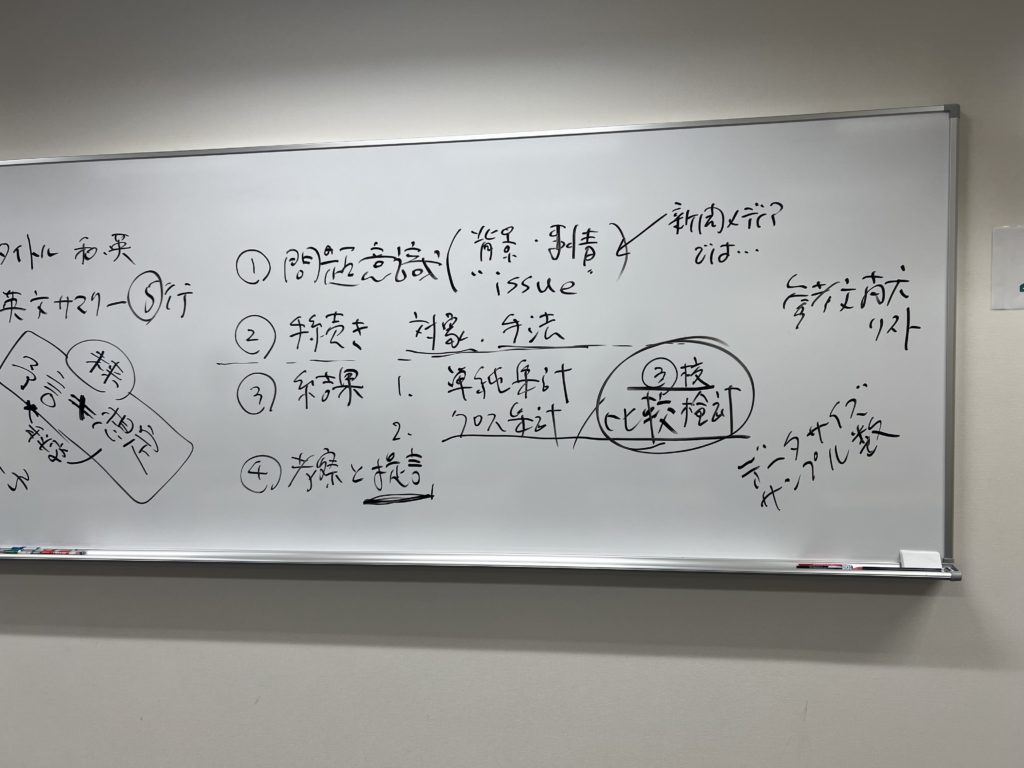 タイトル 和英
英文サマリー⑤行
① 問題意識(背景・事情)
"issue"
新聞メディア
では…
② 手続き 対象・手法
③ 結果 1. 単純集計
2. クロス集計
③核
比較検討
④ 考察と提言
参考文献
リスト
データサイズ
サンプル数
予言≠想定